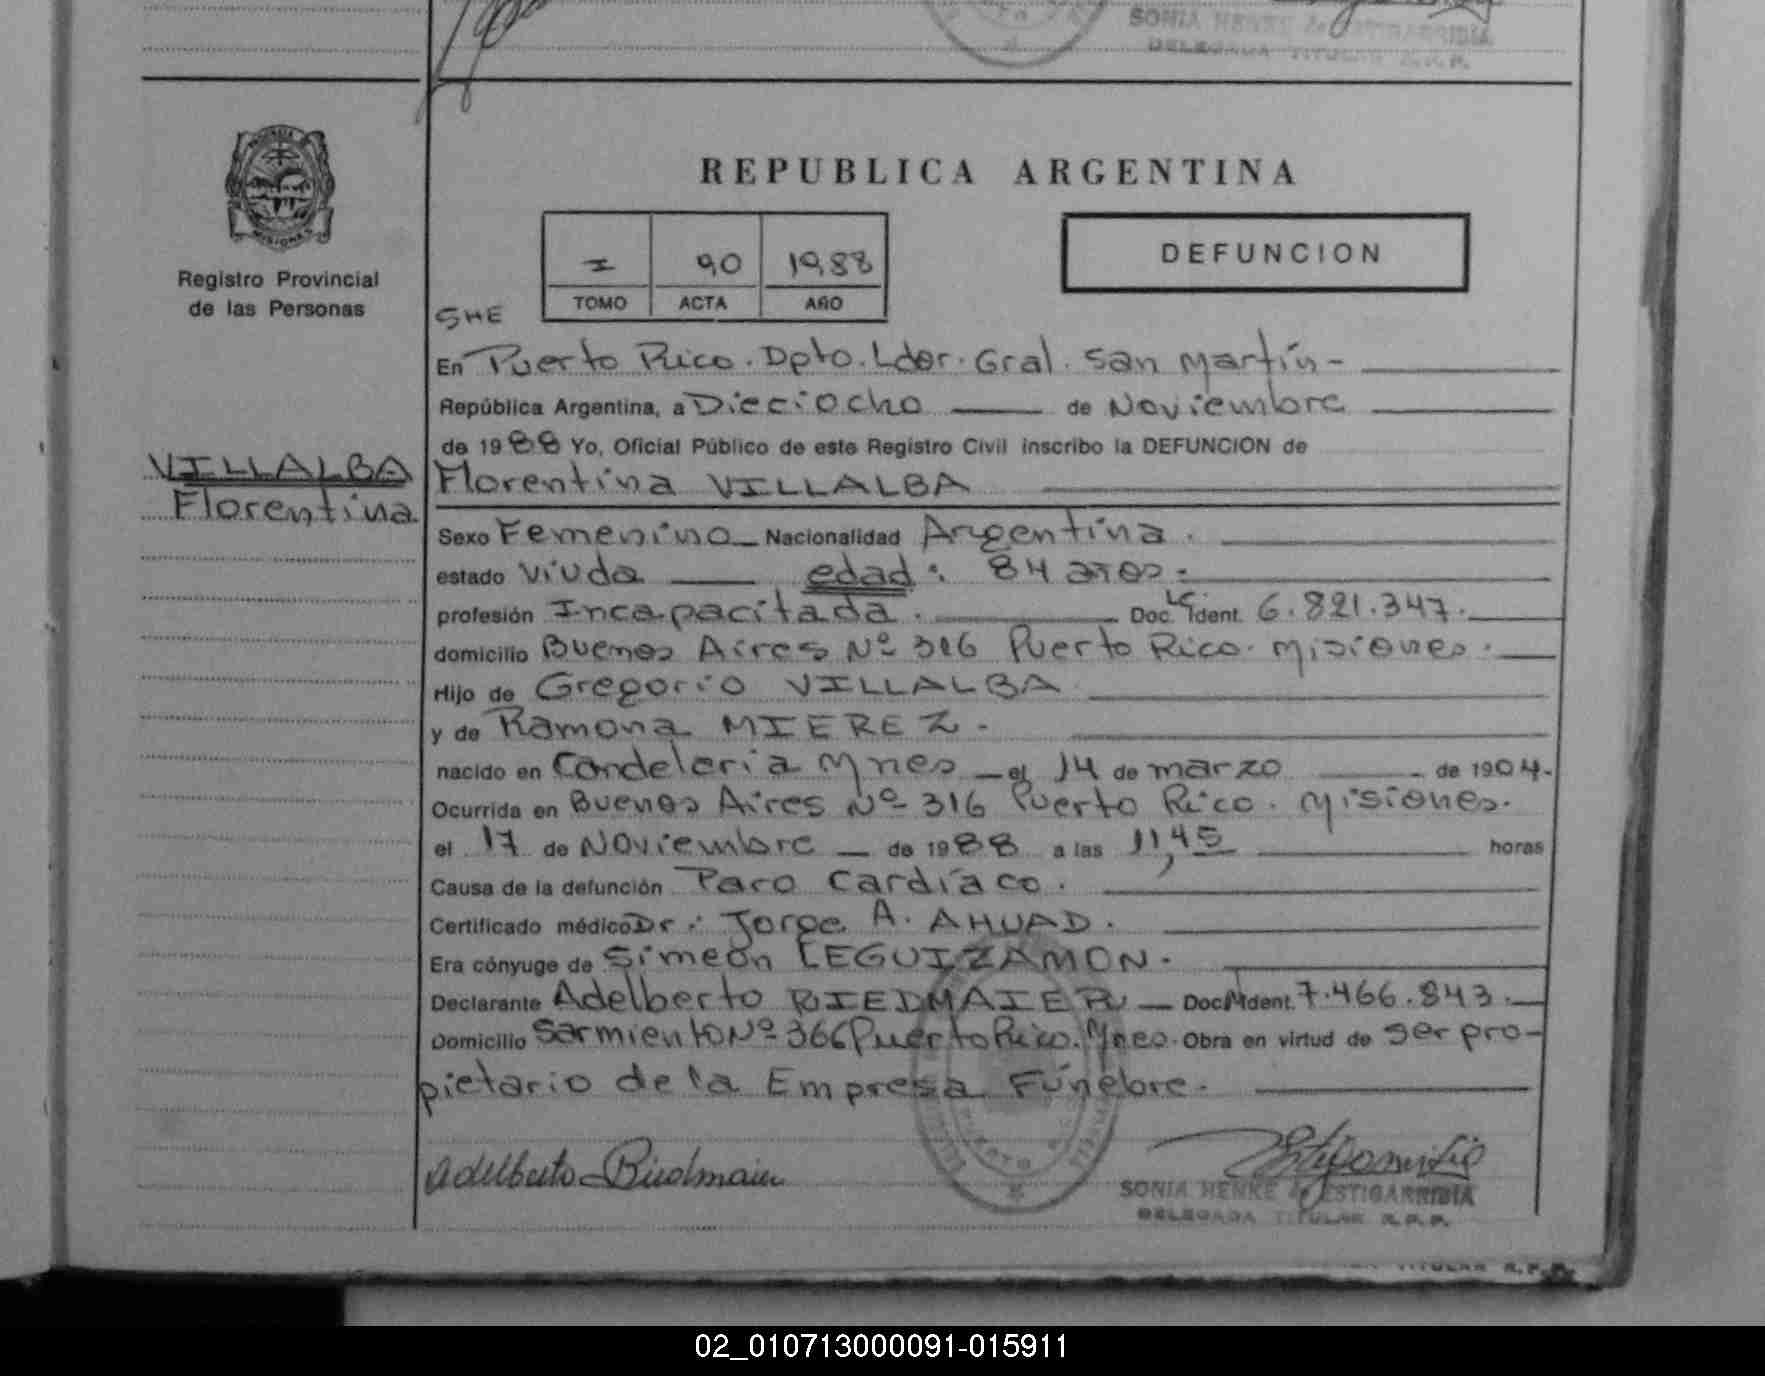 SONIA HENKE de ESTIGARRIBIA
DELEGADA TITULAR R.P.P.
PROVINCIA DE
MISIONES
Registro Provincial
de las Personas
REPUBLICA ARGENTINA
I 90 1988
TOMO ACTA AÑO
DEFUNCION
SHE
En Puerto Rico. Dpto. Ldor. Gral. San Martín-
República Argentina, a Dieciocho de Noviembre
de 1988 Yo, Oficial Público de este Registro Civil inscribo la DEFUNCION de
VILLALBA
Florentina
Florentina VILLALBA
Sexo Femenino Nacionalidad Argentina.
estado Viuda edad: 84 años.
profesión Incapacitada. Doc. LC. Ident. 6.821.347.
domicilio Buenos Aires Nº 316 Puerto Rico. Misiones.
Hijo de Gregorio VILLALBA
y de Ramona MIEREZ.
nacido en Candelaria Mnes el 14 de marzo de 1904.
Ocurrida en Buenos Aires Nº 316 Puerto Rico. Misiones.
el 17 de Noviembre de 1988 a las 11,45 horas
Causa de la defunción Paro Cardíaco.
Certificado médico Dr.: Jorge A. AHUAD.
Era cónyuge de Simeón LEGUIZAMON.
Declarante Adelberto RIEDMAIER Doc. M Ident. 7.466.843.
Domicilio Sarmiento Nº 366 Puerto Rico. Mnes. Obra en virtud de ser pro-
pietario de la Empresa Fúnebre.
Adelberto Riedmaier
SONIA HENKE de ESTIGARRIBIA
DELEGADA TITULAR R.P.P.
TITULAR R.P.P.
02_010713000091-015911